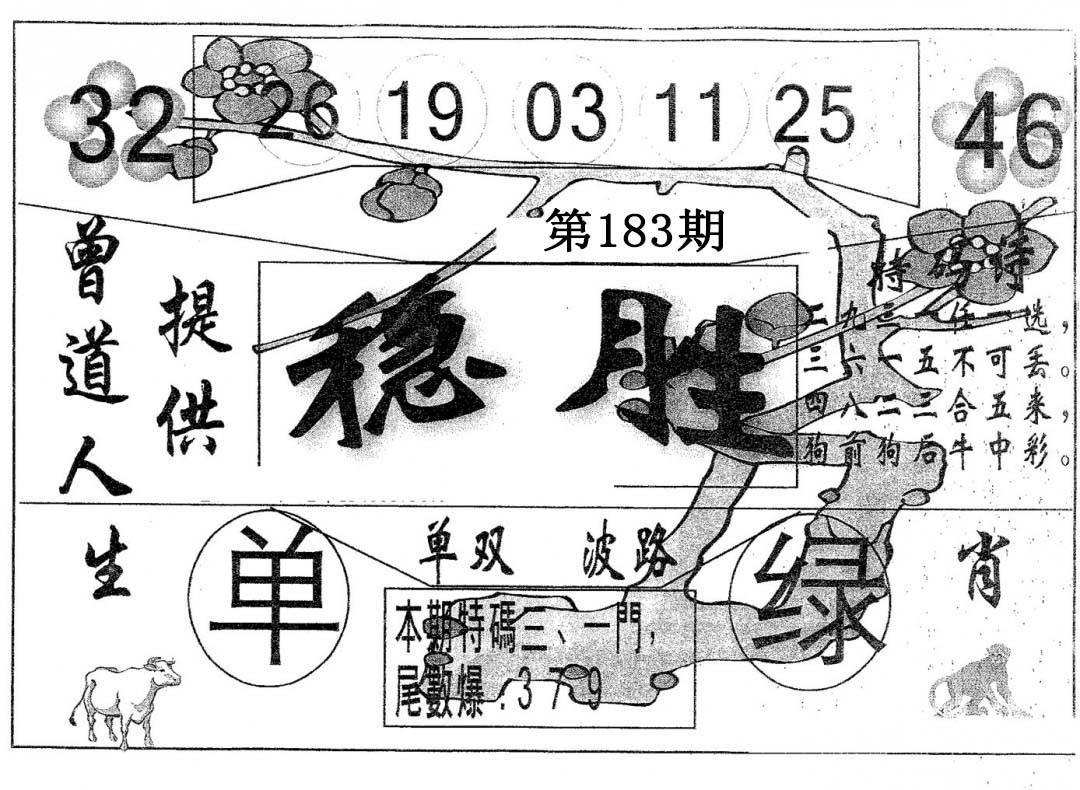 32 26 19 03 11 25 46
第183期
曾道人
提供
稳胜
特码诗
二九三一任一选，
三六一五不可丢。
四八二三合五来，
狗前狗后牛中彩。
生肖
单双 波路
单
绿
本期特碼三、一門，
尾數爆:379